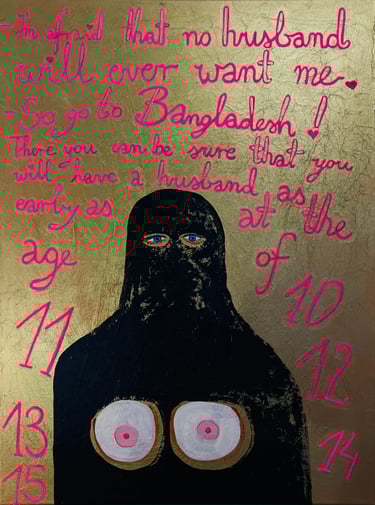 - I'm afraid that no husband
will ever want me.
- So, go to Bangladesh!
There you can be sure that you
will have a husband as
early as at the
age of
10
11
12
13
14
15